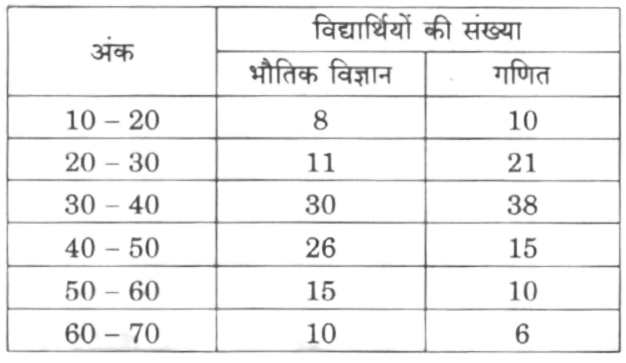 अंक विद्यार्थियों की संख्या
भौतिक विज्ञान गणित
10 – 20 8 10
20 – 30 11 21
30 – 40 30 38
40 – 50 26 15
50 – 60 15 10
60 – 70 10 6